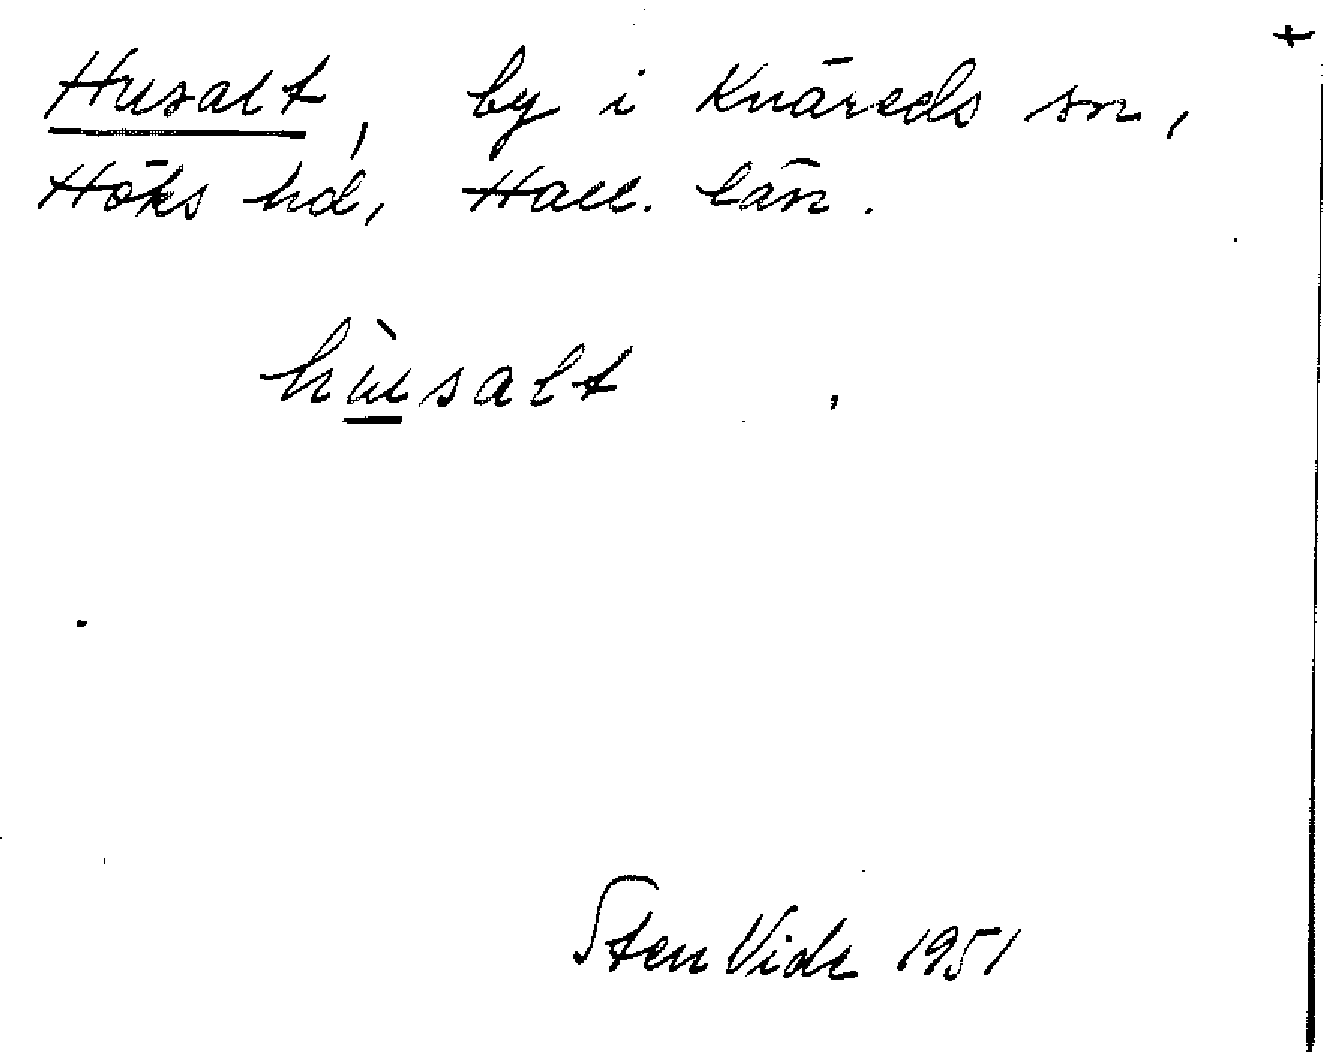 +
Husalt, by i Knäreds sn,
Höks hd, Hall. län.
hùsalt
Sten Vide 1951